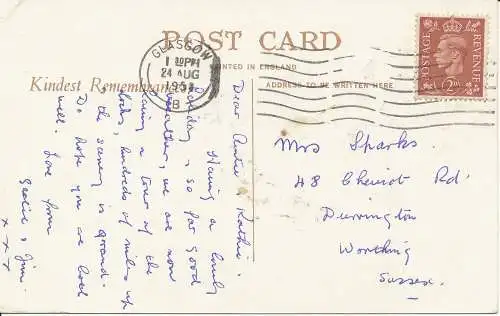 POST CARD
PRINTED IN ENGLAND
Kindest Remembrances
ADDRESS TO BE WRITTEN HERE
GLASGOW
24 AUG
195
B
POSTAGE
REVENUE
2D
Dear Auntie Kathie.
Having a lovely
holiday, so far good
weather, we are now
having a tour of the
lochs, hundreds of miles up
, the scenery is grand.
Do hope you are both
well.
Love from
& Jim
x x x
Mrs Sparks.
48 Cheviot Rd.
Durrington
Worthing
Sussex.